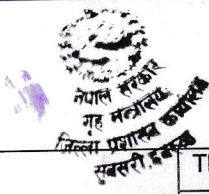 नेपाल सरकार
गृह मन्त्रालय
जिल्ला प्रशासन कार्यालय
सुनसरी, इनरुवा